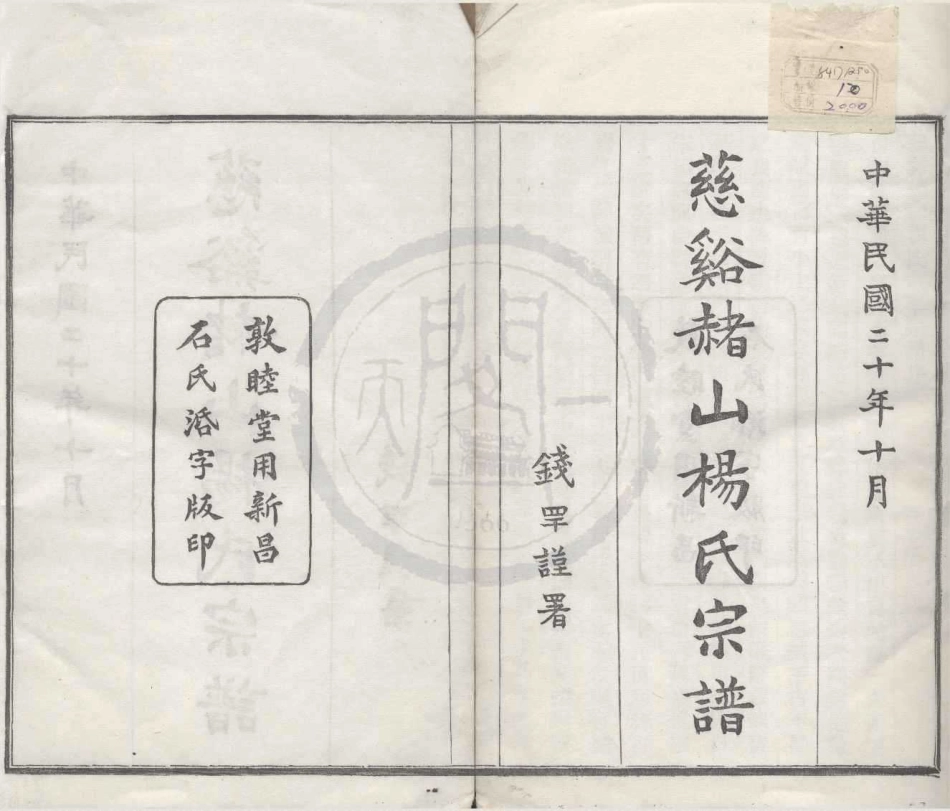 中華民國二十年十月
慈谿赭山楊氏宗譜
錢罕謹署
敦睦堂用新昌
石氏活字版印
1366
10
2000